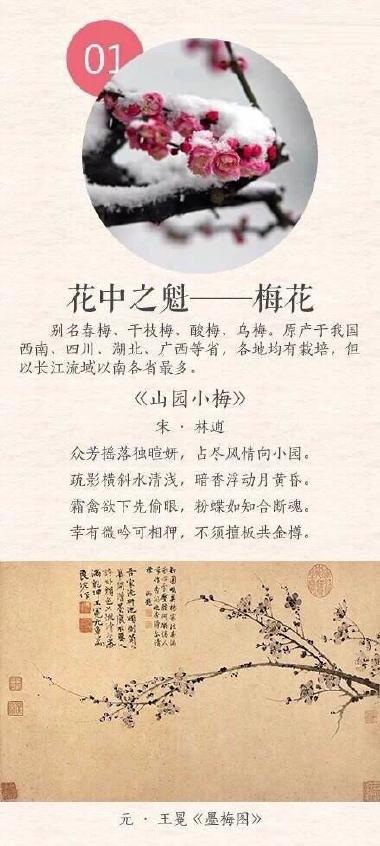 01
花中之魁——梅花
别名春梅、干枝梅、酸梅、乌梅。原产于我国
西南、四川、湖北、广西等省，各地均有栽培，但
以长江流域以南各省最多。
《山园小梅》
宋 · 林逋
众芳摇落独暄妍，占尽风情向小园。
疏影横斜水清浅，暗香浮动月黄昏。
霜禽欲下先偷眼，粉蝶如知合断魂。
幸有微吟可相狎，不须擅板共金樽。
元 · 王冕《墨梅图》